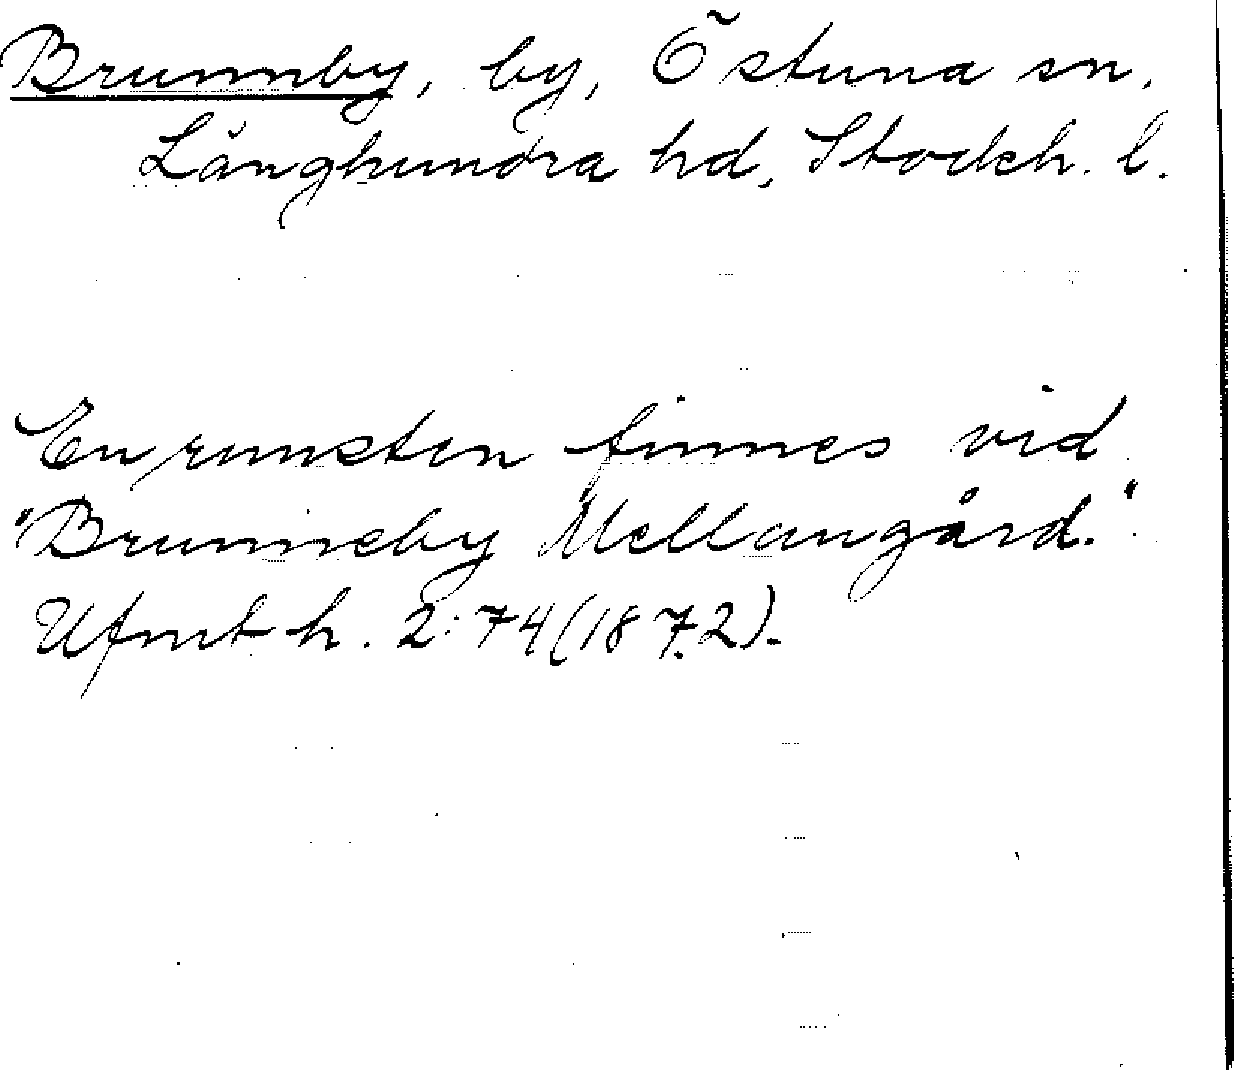 Brunnby, by, Östuna sn,
Långhundra hd, Stockh. l.
En runsten finnes vid
"Brunneby Mellangård."
Ufmt h. 2:74 (1872).